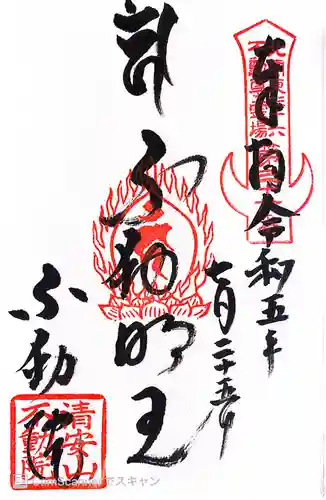 奉拝 令和五年
二十五日
不動明王
不動院
北関東三十六
不動尊霊場
清安山
不動院
CamScannerでスキャン